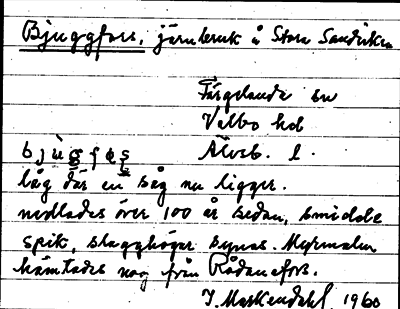 Bjuggfors, järnbruk å Stora Sandviken
Färgelanda sn
Valbo hd
Älvsb. l.
låg där en såg nu ligger.
nedlades över 100 år sedan, smidde
spik, slagghögar synas. Myrmalm
hämtades nog från Rådanefors.
1960